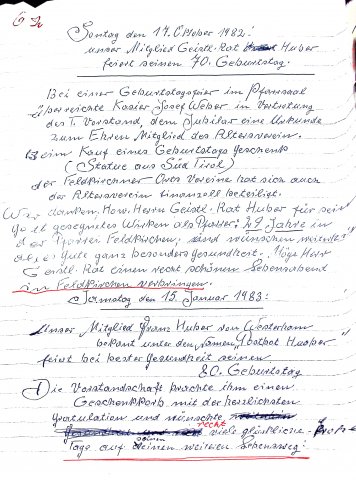 Sontag den 17. Oktober 1982:
unser Mitglied Geistl. Rat Huber
feiert seinen 70. Geburtstag.
Bei einer Geburtstagsfeier im Pfarrsaal
überreichte Kasier Josef Weber in Vertretung
des I. Vorstand, dem Jubilar eine Urkunde
zum Ehren Mitglied des Altersverein.
Beim Kauf eines Geburtstags Geschenk
(Statue aus Süd Tirol)
der Feldkirchner Orts Vereine hat sich auch
der Altersverein finanzell beteiligt.
Wir danken, Herrn Geistl. Rat Huber für sein
gott gesegnetes Wirken als Pfarrer: 47 Jahre in
der Pfarrei Feldkirchen, und wünschen weiterhin
alles Gute ganz besonders Gesundheit. Möge Herr
Geistl. Rat einen recht schönen Lebensabend
in Feldkirchen verbringen.
Samstag den 15. Januar 1983:
Unser Mitglied Franz Huber von Westerham
bekant unter den Namen,
feiert bei bester Gesundheit seinen
80. Geburtstag
Die Vorstandschaft brachte ihm einen
Geschenkkorb mit der herzlichsten
Gratulation und wünschte
recht viele glückliche
Tage auf seinen weiteren Lebensweg.